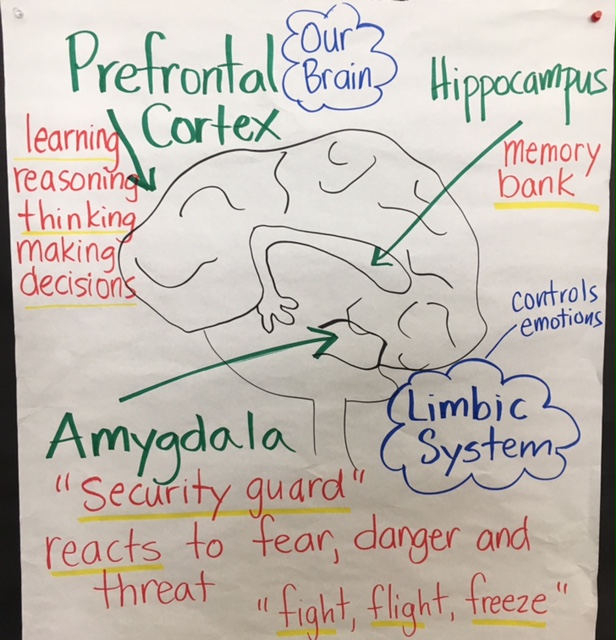 Our
Brain
Prefrontal
Cortex
learning
reasoning
thinking
making
decisions
Hippocampus
memory
bank
controls
emotions
Limbic
System
Amygdala
"Security guard"
reacts to fear, danger and
threat
"fight, flight, freeze"